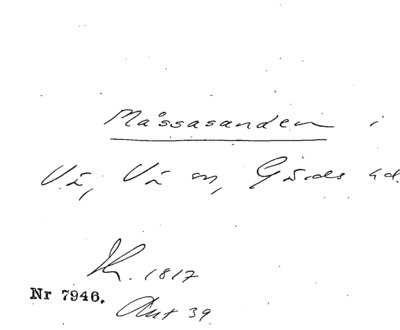 Måssasanden i
Vä, Vä sn, Gärds hd.
K. 1817
Nr 7946.
Ant 39